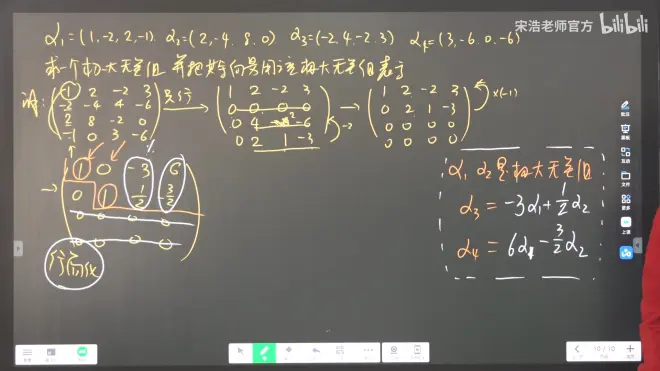 宋浩老师官方 bilibili
α₁=(1,-2,2,-1) α₂=(2,-4,8,0) α₃=(-2,4,-2,3) α₄=(3,-6,0,-6)
求一个极大无关组 并把其余向量用该极大无关组表示
解:
1 2 -2 3
-2 -4 4 -6
2 8 -2 0
-1 0 3 -6
只行
→
1 2 -2 3
0 0 0 0
0 4 2 -6
0 2 1 -3
-2
→
1 2 -2 3
0 2 1 -3
0 0 0 0
0 0 0 0
×(-1)
→
1 0 -3 6
0 1 1/2 -3/2
0 0 0 0
0 0 0 0
行简化
α₁ α₂是极大无关组
α₃ = -3α₁+1/2α₂
α₄ = 6α₁-3/2α₂
10/10